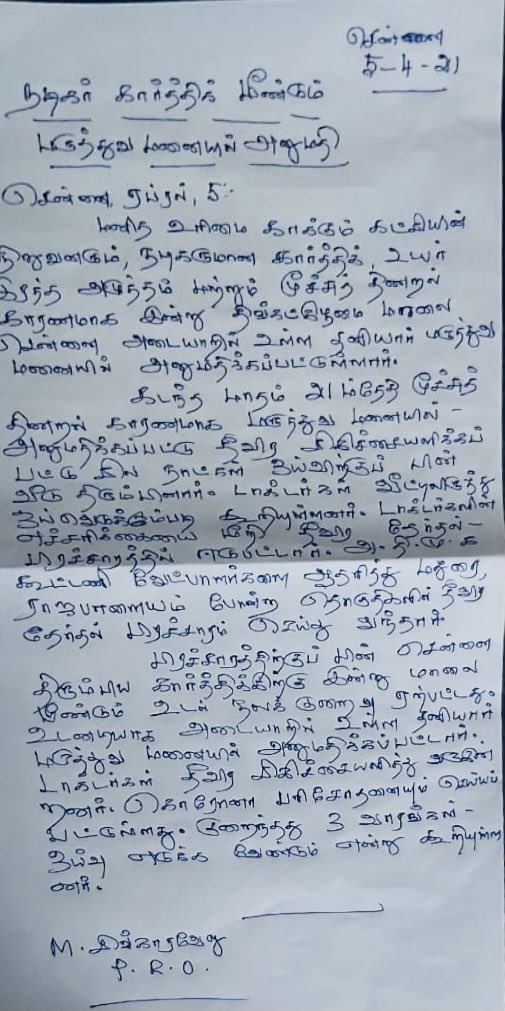 சென்னை
5-4-21
நடிகர் கார்த்திக் மீண்டும்
மருத்துவ மனையில் அனுமதி
சென்னை, ஏப்ரல், 5:-
மனித உரிமை காக்கும் கட்சியின்
நிறுவனரும், நடிகருமான கார்த்திக், உயர்
இரத்த அழுத்தம் மற்றும் மூச்சுத் திணறல்
காரணமாக இன்று திங்கட்கிழமை மாலை
சென்னை அடையாறில் உள்ள தனியார் மருத்துவ
மனையில் அனுமதிக்கப்பட்டுள்ளார்.
கடந்த மாதம் 21 ம்தேதி மூச்சுத்
திணறல் காரணமாக மருத்துவ மனையில் -
அனுமதிக்கப்பட்டு தீவிர சிகிச்சையளிக்கப்
பட்டு சில நாட்கள் ஓய்விற்குப் பின்
வீடு திரும்பினார். டாக்டர்கள் வீட்டிலிருந்து
ஓய்வெடுக்கும்படி கூறியுள்ளனர். டாக்டர்களின்
எச்சரிக்கையை மீறி தீவிர தேர்தல் -
பிரச்சாரத்தில் ஈடுபட்டார். அ.தி.மு.க
கூட்டணி வேட்பாளர்களை ஆதரித்து மதுரை,
ராஜபாளையம் போன்ற தொகுதிகளில் தீவிர
தேர்தல் பிரச்சாரம் செய்து வந்தார்.
பிரச்சாரத்திற்குப் பின் சென்னை
திரும்பிய கார்த்திக்கிற்கு இன்று மாலை
மீண்டும் உடல் நலக் குறைவு ஏற்பட்டது.
உடனடியாக அடையாறில் உள்ள தனியார்
மருத்துவ மனையில் அனுமதிக்கப்பட்டார்.
டாக்டர்கள் தீவிர சிகிச்சையளித்து வருகின்
றனர். கொரோனா பரிசோதனையும் செய்யப்
பட்டுள்ளது. குறைந்தது 3 வாரங்கள் -
ஓய்வு எடுக்க வேண்டும் என்று கூறியுள்ள
னர்.
M. சிங்காரவேலு
P.R.O.